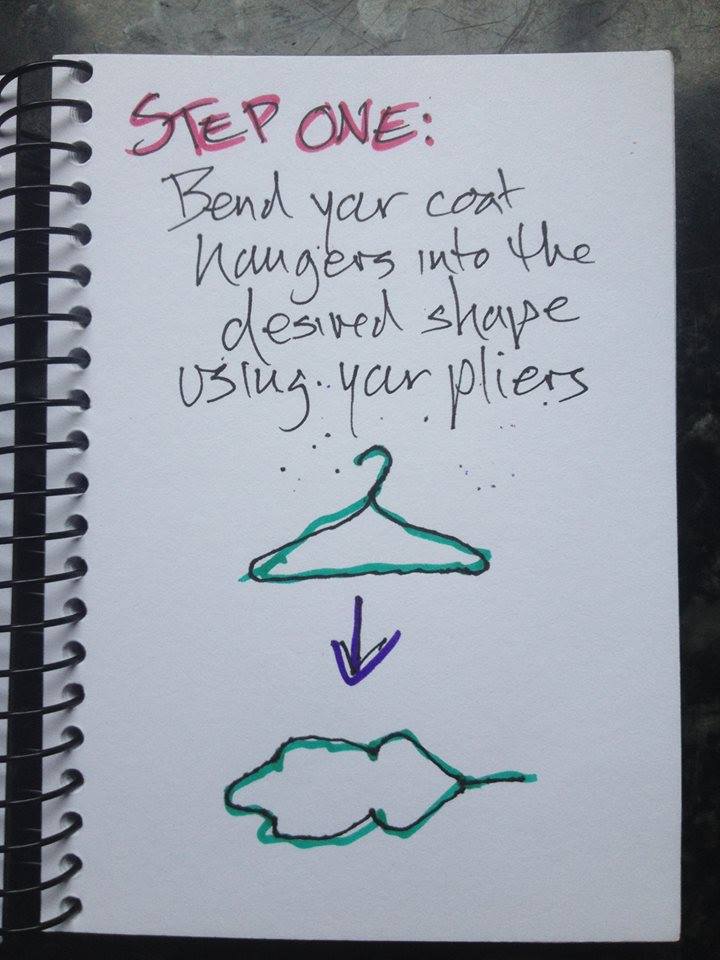 STEP ONE:
Bend your coat
hangers into the
desired shape
using your pliers